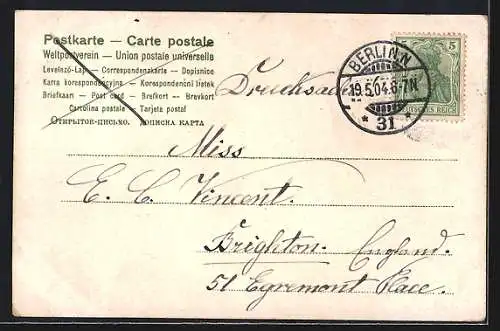 Postkarte — Carte postale
Weltpostverein — Union postale universelle
Levelező-Lap — Correspondenzkarte — Dopisnice
Karta korespondencyjna — Korespondenční lístek
Briefkaart — Post card — Brefkort — Brevkort
Cartolina postale — Tarjeta postal
Открытое-письмо. Дописна карта
Drucksache
BERLIN.N.
19.5.04.6-7N.
* 31 *
5 5
DEUTSCHES REICH
Miss
E. C. Vincent.
Brighton. England.
51 Egremont Place.